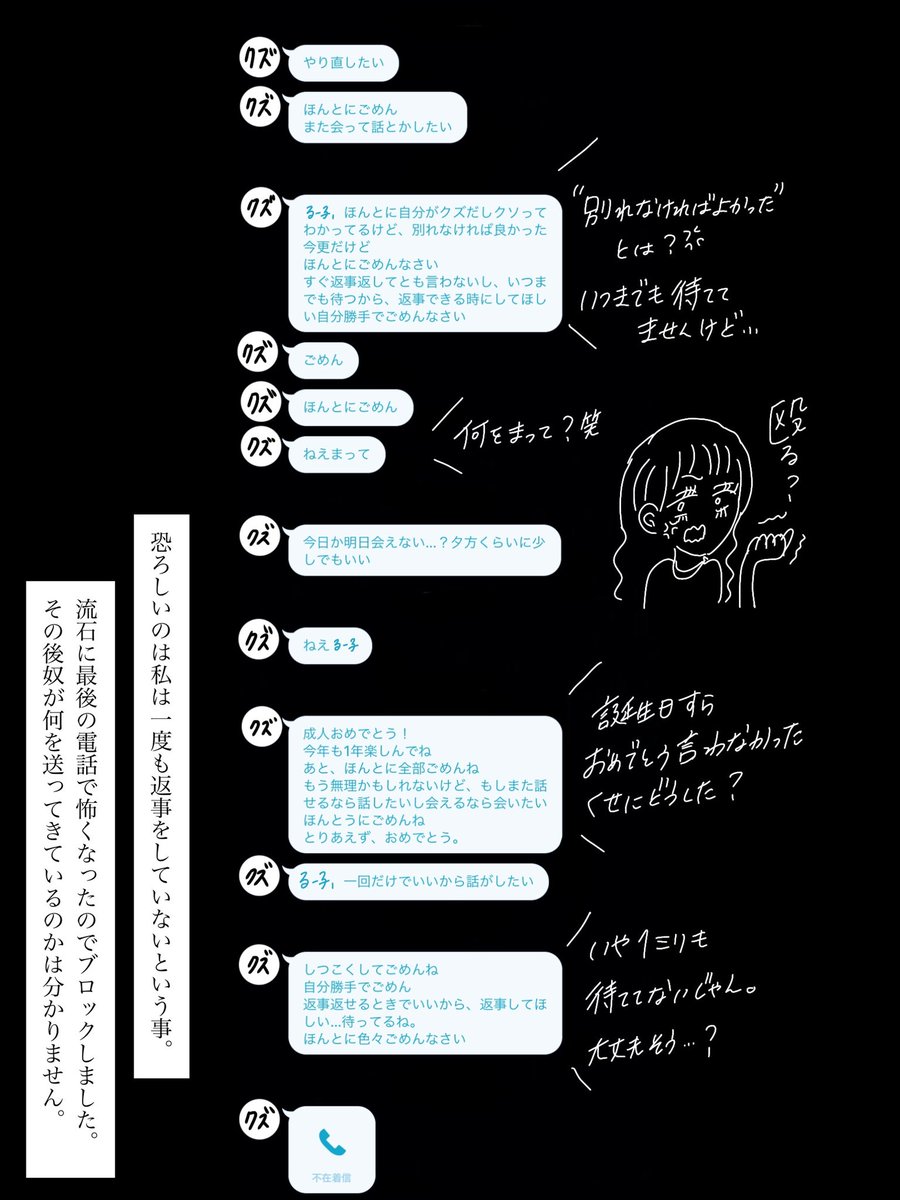 クズ
やり直したい
クズ
ほんとにごめん
また会って話とかしたい
クズ
るー子，ほんとに自分がクズだしクソって
わかってるけど、別れなければ良かった
今更だけど
ほんとにごめんなさい
すぐ返事返してとも言わないし、いつま
でも待つから、返事できる時にしてほし
い自分勝手でごめんなさい
"別れなければよかった"
とは？
いつまでも待てて
ませんけど…
クズ
ごめん
クズ
ほんとにごめん
クズ
ねえまって
何をまって？笑
殴る？
クズ
今日か明日会えない...？夕方くらいに少
しでもいい
クズ
ねえるー子
クズ
成人おめでとう！
今年も1年楽しんでね
あと、ほんとに全部ごめんね
もう無理かもしれないけど、もしまた話
せるなら話したいし会えるなら会いたい
ほんとうにごめんね
とりあえず、おめでとう。
誕生日すら
おめでとう言わなかった
くせにどうした？
クズ
るー子，一回だけでいいから話がしたい
クズ
しつこくしてごめんね
自分勝手でごめん
返事返せるときでいいから、返事してほ
しい...待ってるね。
ほんとに色々ごめんなさい
いや1ミリも
待ててないじゃん。
大丈夫そう…？
クズ
不在着信
恐ろしいのは私は一度も返事をしていないという事。
流石に最後の電話で怖くなったのでブロックしました。
その後奴が何を送ってきているのかは分かりません。